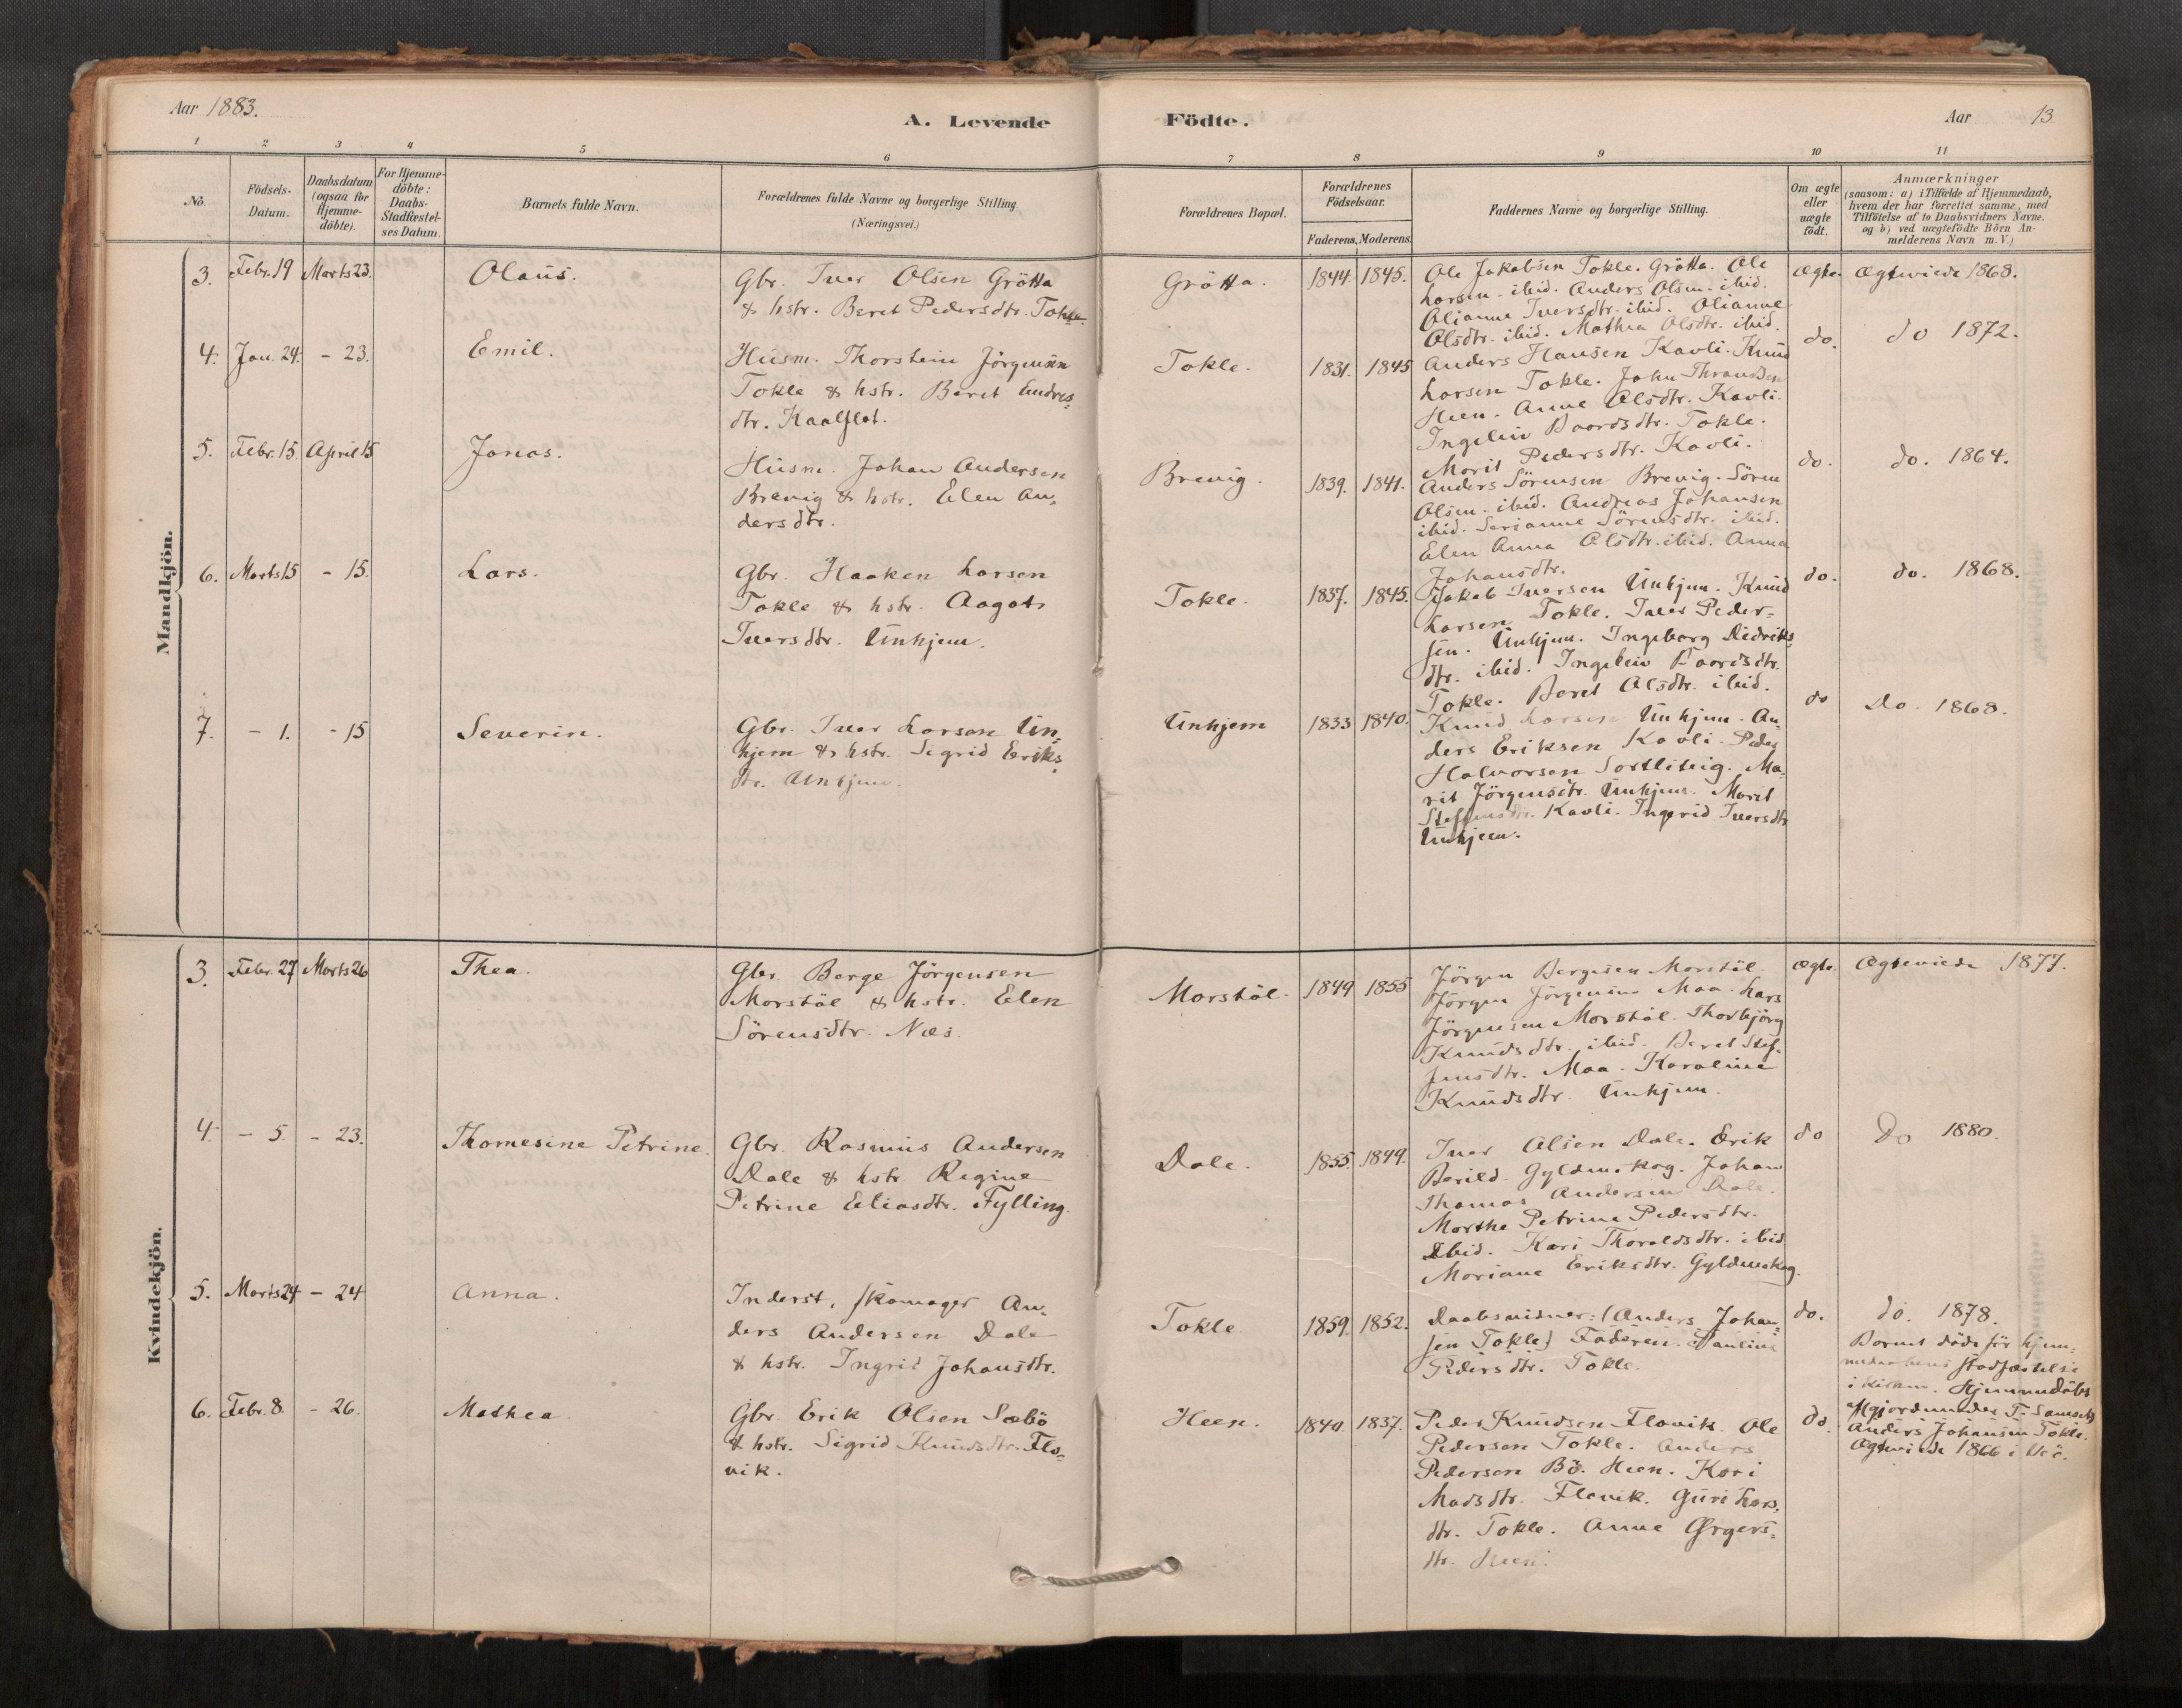 Aar 1883.
A. Levende
Födte.
Aar 13
1 2 3 4 5 6 7 8 9 10 11
No.
Födsels-
Datum.
Daabsdatum
(ogsaa for
Hjemme-
döbte).
For Hjemme-
döbte:
Daabs-
Stadfæstel-
ses Datum.
Barnets fulde Navn.
Forældrenes fulde Navne og borgerlige Stilling
(Næringsvei.)
Forældrenes Bopæl.
Forældrenes
Födselsaar.
Faderens. Moderens.
Faddernes Navne og borgerlige Stilling.
Om ægte
eller
uægte
födt.
Anmærkninger
(saasom: a) i Tilfælde af Hjemmedaab,
hvem der har forrettet samme, med
Tilföielse af to Daabsvidners Navne.
og b) ved uægtefödte Börn An-
melderens Navn m. V.)
Mandkjön.
3. Febr. 19 Marts 23. Olaus.
Gbr. Iver Olsen Grötta
& hstr. Beret Pedersdtr. Tokle.
Grötta. 1844. 1845.
Ole Jakobsen Tokle. Grötta. Ole
Larsen ibid. Anders Olsen ibid.
Olianne Iversdtr. ibid. Olianne
Olsdtr. ibid. Mathea Olsdtr. ibid.
Ægte. Ægteviede 1868.
4. Jan. 24. - 23. Emil.
Husm. Thorstein Jörgensen
Tokle & hstr. Beret Endres-
dtr. Kaalflot.
Tokle. 1831. 1845
Anders Hansen Kavli. Knud
Larsen Tokle. John Throndsen
Heen. Anne Olsdtr. Kavli.
Ingeleiv Baardsdtr. Tokle.
Marit Pedersdtr. Kavli.
do. do 1872.
5. Febr. 15. April 15 Jonas.
Husm. Johan Andersen
Brevig & hstr. Elen An-
dersdtr.
Brevig. 1839. 1841.
Anders Sörensen Brevig. Sören
Olsen ibid. Andreas Johansen
ibid. Serianne Sörensdtr. ibid.
Elen Anna Olsdtr. ibid. Anna
Johansdtr.
do. do. 1864.
6. Marts 15 - 15. Lars.
Gbr. Haaken Larsen
Tokle & hstr. Aagot
Iversdtr. Unhjem.
Tokle. 1837. 1845.
Jakob Iversen Unhjem. Knud
Larsen Tokle. Iver Peder-
sen. Unhjem. Ingeborg Didriks
dtr. ibid. Ingeleiv Baardsdtr.
Tokle. Beret Olsdtr. ibid.
do. do. 1868.
7. - 1. - 15 Severin.
Gbr. Iver Larsen Un-
hjem & hstr. Sigrid Eriks-
dtr. Unhjem.
Unhjem 1833 1840.
Knud Larsen Unhjem. An-
ders Eriksen Kavli. Peder
Halvorsen Sortliteig. Ma-
rit Jörgensdtr. Unhjem. Marit
Steffensdtr. Kavli. Ingerid Iversdtr
Unhjem.
do Do. 1868.
Kvindekjön.
3. Febr. 27 Marts 26 Thea.
Gbr. Berge Jörgensen
Morstöl & hstr. Elen
Sörensdtr. Næs.
Morstöl. 1849 1855
Jörgen Bergesen Morstöl.
Jörgen Jörgensen Maa. Lars
Jörgensen Morstöl. Thorbjörg
Knudsdtr. ibid. Beret Stef-
fensdtr. Maa. Karoline
Knudsdtr. Unhjem.
Ægte. Ægteviede 1877.
4. - 5. - 23. Thomesine Petrine.
Gbr. Rasmus Andersen
Dale & hstr. Regine
Petrine Eliasdtr. Fylling.
Dale. 1855. 1849.
Iver Olsen Dale. Erik
Berild Gyldenskog. Johan
Thomas Andersen Dale.
Marthe Petrine Pedersdtr.
Ibid. Kari Thoraldsdtr. ibid.
Mariane Eriksdtr. Gyldenskog.
do Do 1880.
5. Marts 24 - 24 Anna.
Inderst, skomager An-
ders Andersen Dale
& hstr. Ingrid Johansdtr.
Tokle 1859. 1852.
Daabsvidner: (Anders Johan-
sen Tokle) Faderen. Pauline
Pedersdtr. Tokle.
do. do. 1878.
Barnet döde för hjem-
medaabens stadfæstelse
i kirken. Hjemmedöbt
af Gjordemoder
Anders Johansen Tokle.
6. Febr. 8. - 26. Mathea.
Gbr. Erik Olsen Sæbö
& hstr. Sigrid Knudsdtr. Flo-
vik.
Heen. 1840. 1837.
Peder Knudsen Flovik. Ole
Pedersen Tokle. Anders
Pedersen Bö. Heen. Kari
Madsdtr. Flovik. Guri Lars-
dtr. Tokle. Anne Ørgers-
dtr. Heen.
do. Ægteviede 1866 i Veö.